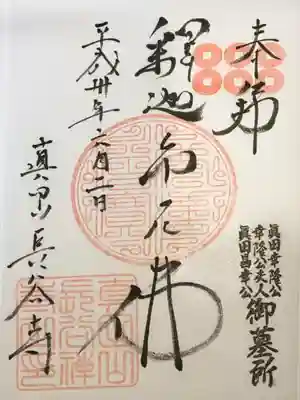 奉拝
眞田幸隆公
幸隆公夫人
眞田昌幸公
御墓所
釋迦牟尼佛
平成卅年六月二日
真田山長谷寺
真田山
長谷禅